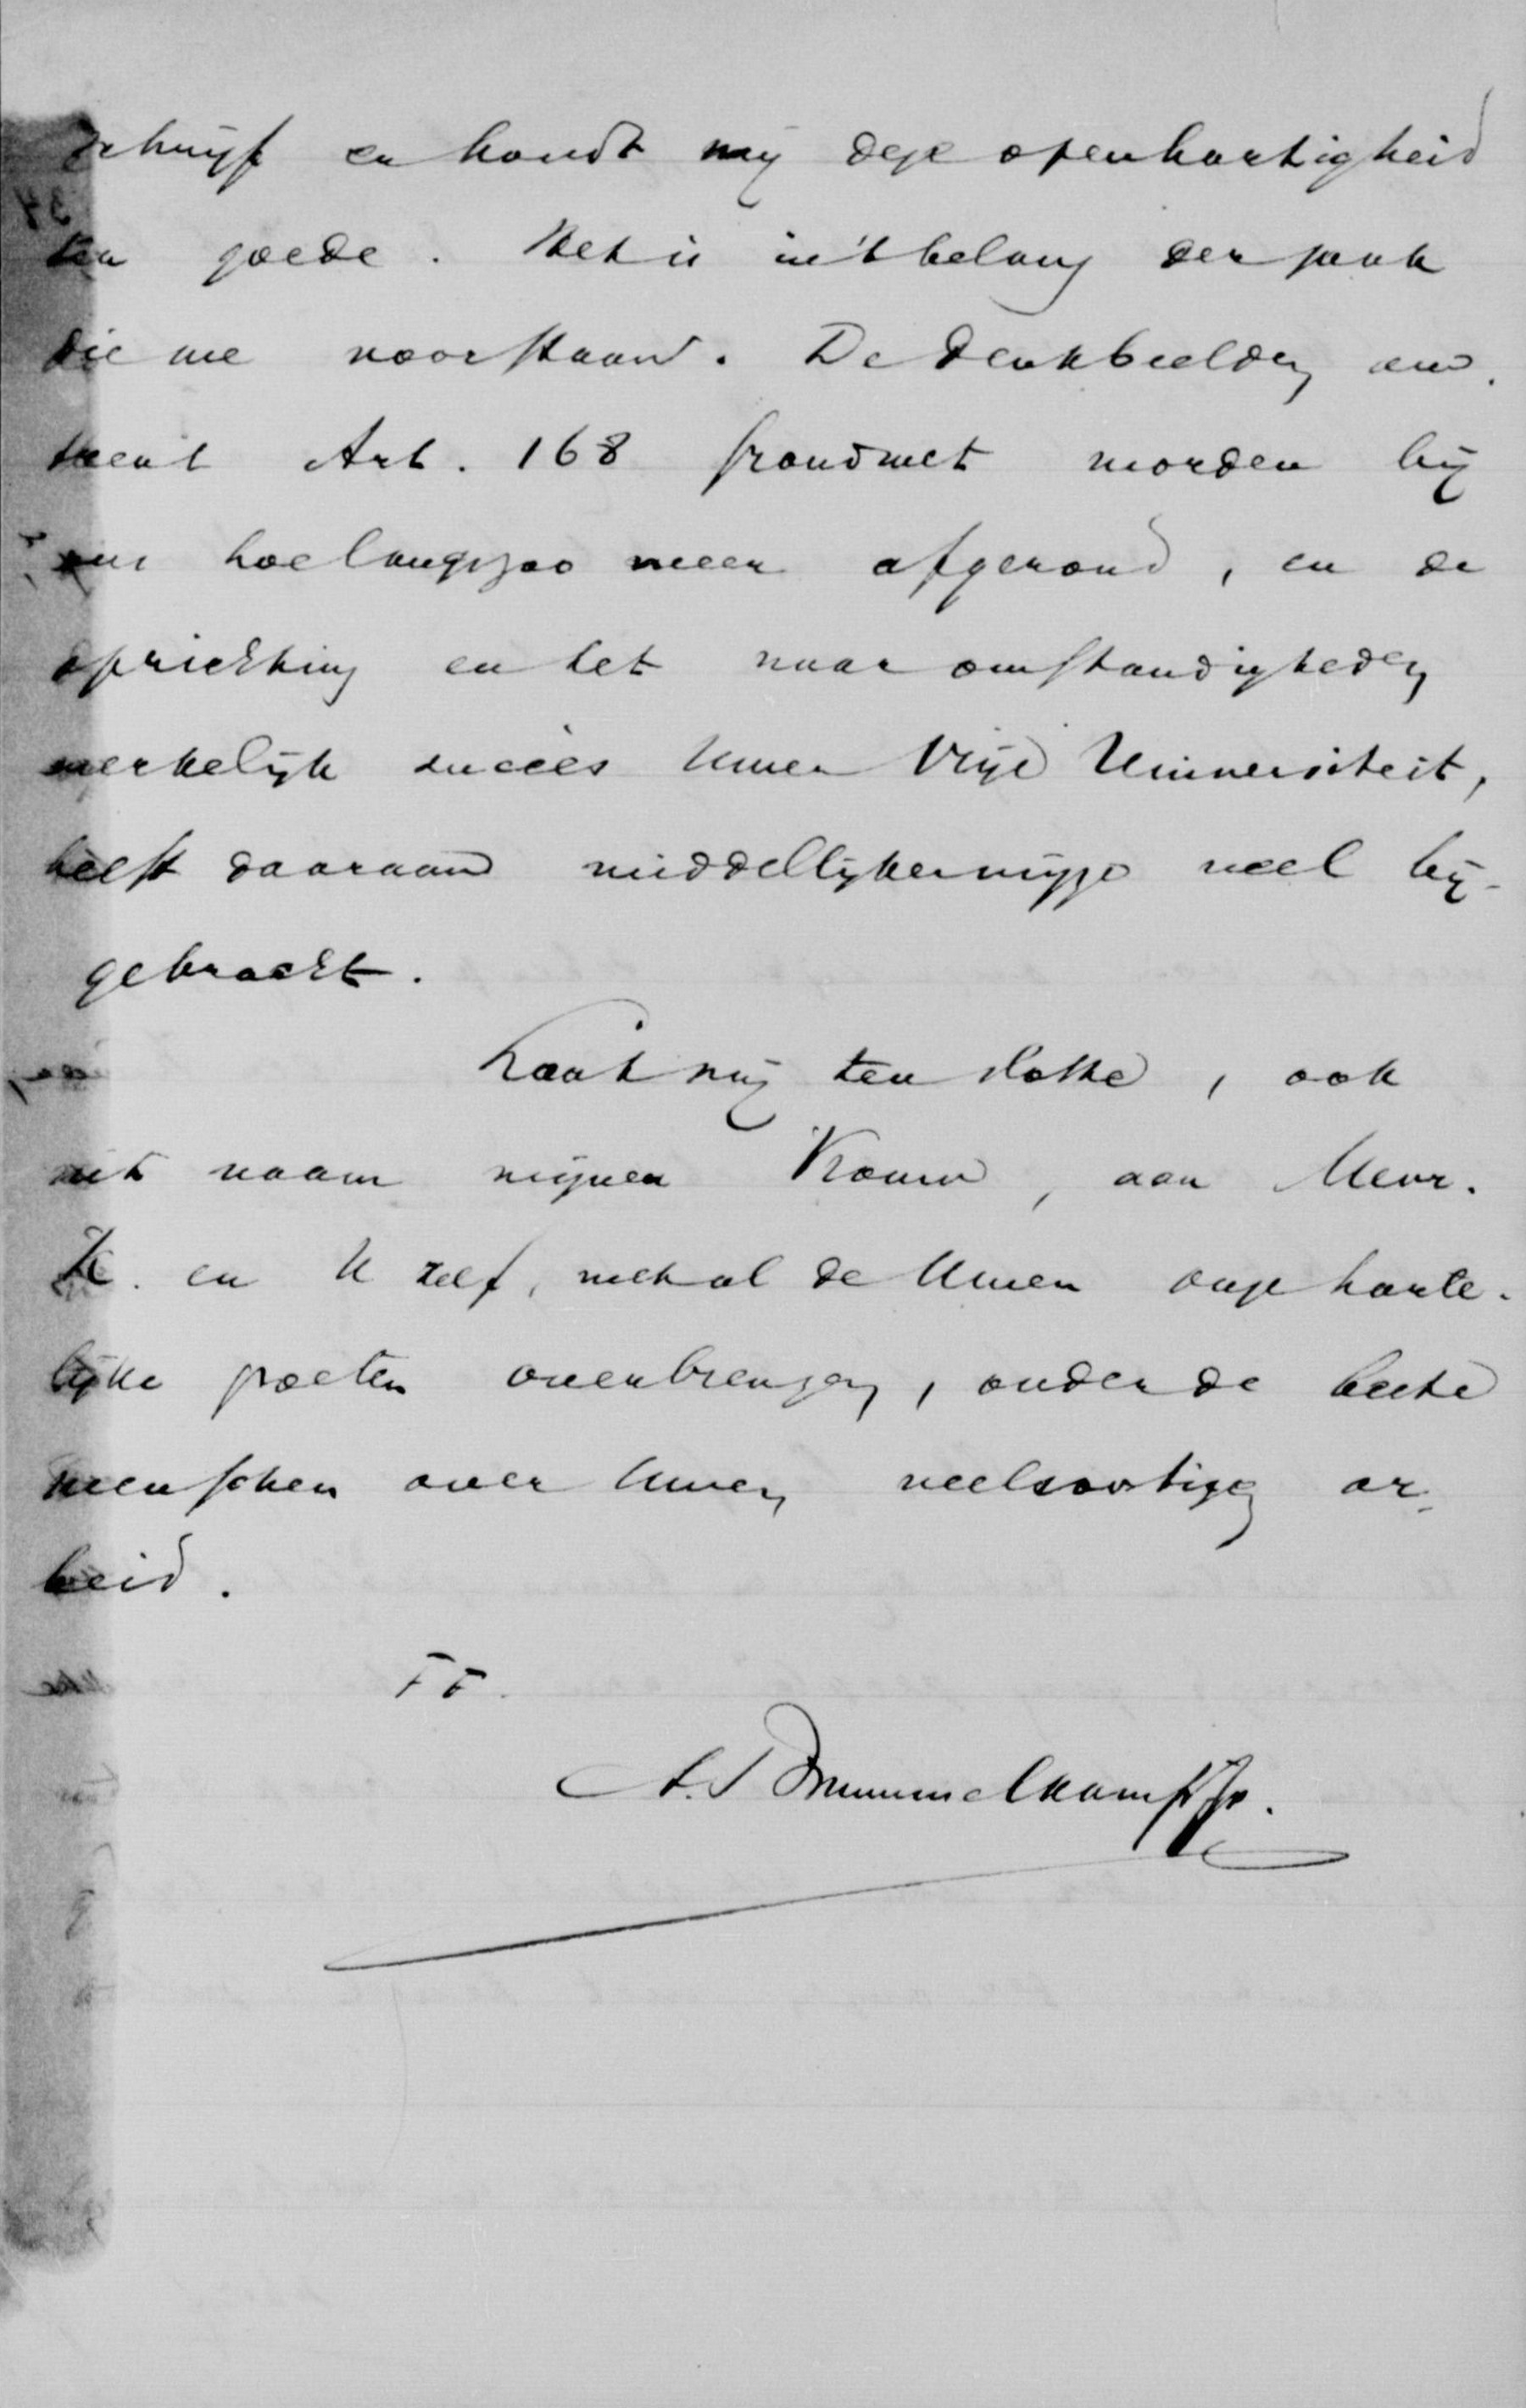 schrijf en houdt mij deze openhartigheid
ten goede. Het is in 't belang der zaak
die we voorstaan. De denkbeelden om-
trent Art. 168 Grondwet worden bij
ons hoe langs zoo meer afgerond, en de
oprichting en het naar omstandigheden
werkelijk succès Uwer Vrije Universiteit,
heeft daaraan middellijkerwijze veel bij-
gebracht.
Laat mij ten slotte, ook
uit naam mijner Vrouw, aan Mevr.
K. en U zelf, met al de Uwen onze harte-
lijke groeten overbrengen, onder de beste
wenschen over Uwen veelsoortigen ar-
beid.
TT.
A. Brummelkamp Jr.